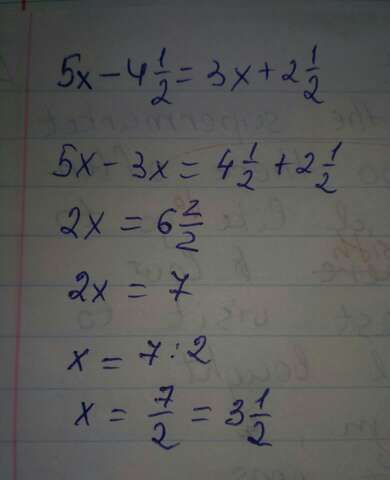 5x - 4 1/2 = 3x + 2 1/2
5x - 3x = 4 1/2 + 2 1/2
2x = 6 2/2
2x = 7
x = 7 : 2
x = 7/2 = 3 1/2
the supermarket